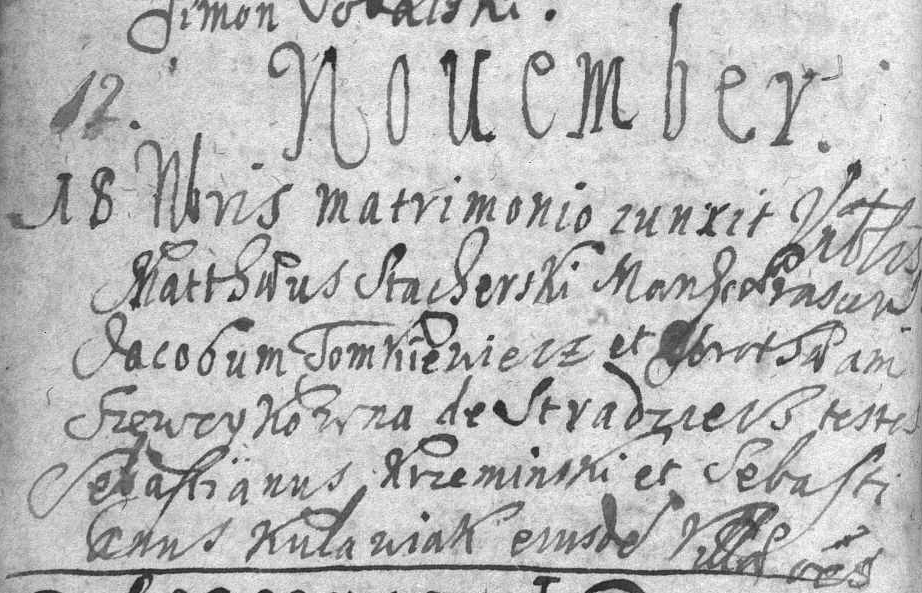 Simon
12. November.
18 Nbris matrimonio iunxit
Matthæus Stacherski
Jacobum Tomkiewicz et Dorothæam
Szewcykowna de Stradziew testes
Sebastianus Krzeminski et Sebasti
anus Kuiawiak eiusde Villæ oēs